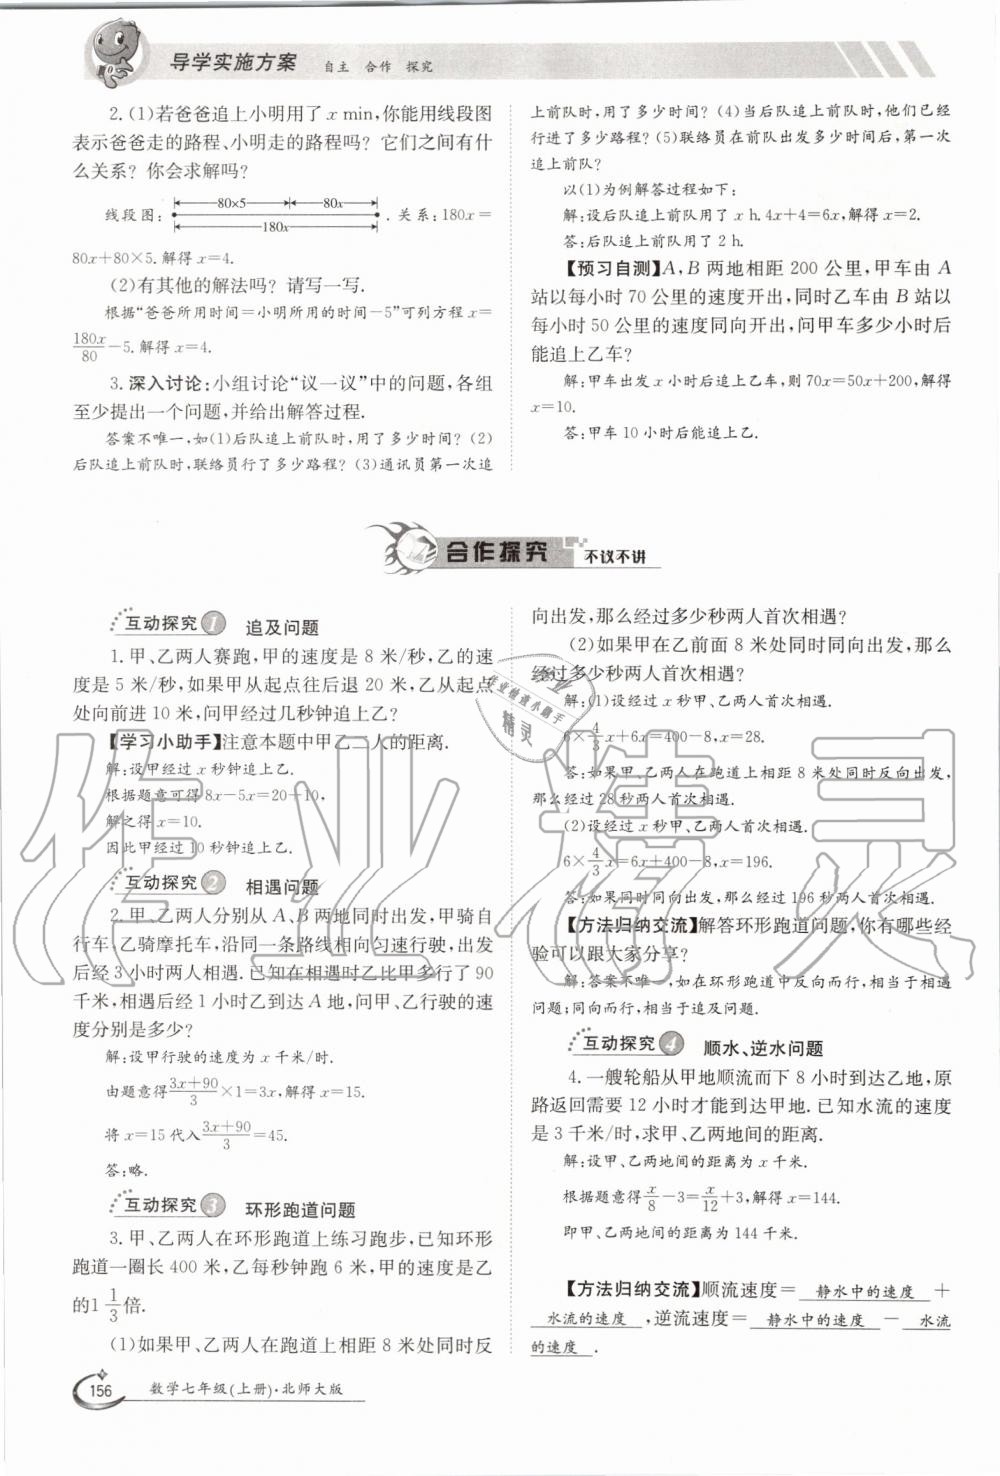 导学实施方案 自主 合作 探究
2.(1)若爸爸追上小明用了 x min,你能用线段图
表示爸爸走的路程、小明走的路程吗? 它们之间有什
么关系? 你会求解吗?
线段图: 80×5 80x 180x .关系:180x=
80x+80×5.解得 x=4.
(2)有其他的解法吗? 请写一写.
根据“爸爸所用时间=小明所用的时间-5”可列方程 x=
180x/80-5.解得 x=4.
3.深入讨论:小组讨论“议一议”中的问题,各组
至少提出一个问题,并给出解答过程.
答案不唯一,如(1)后队追上前队时,用了多少时间? (2)
后队追上前队时,联络员行了多少路程? (3)通讯员第一次追
上前队时,用了多少时间? (4)当后队追上前队时,他们已经
行进了多少路程? (5)联络员在前队出发多少时间后,第一次
追上前队?
以(1)为例解答过程如下:
解:设后队追上前队用了 x h.4x+4=6x,解得 x=2.
答:后队追上前队用了 2 h.
【预习自测】A,B 两地相距 200 公里,甲车由 A
站以每小时 70 公里的速度开出,同时乙车由 B 站以
每小时 50 公里的速度同向开出,问甲车多少小时后
能追上乙车?
解:甲车出发 x 小时后追上乙车,则 70x=50x+200,解得
x=10.
答:甲车 10 小时后能追上乙.
合作探究 不议不讲
互动探究 1 追及问题
1.甲、乙两人赛跑,甲的速度是 8 米/秒,乙的速
度是 5 米/秒,如果甲从起点往后退 20 米,乙从起点
处向前进 10 米,问甲经过几秒钟追上乙?
【学习小助手】注意本题中甲乙二人的距离.
解:设甲经过 x 秒钟追上乙.
根据题意可得 8x-5x=20+10,
解之得 x=10.
因此甲经过 10 秒钟追上乙.
互动探究 2 相遇问题
2.甲、乙两人分别从 A、B 两地同时出发,甲骑自
行车,乙骑摩托车,沿同一条路线相向匀速行驶,出发
后经 3 小时两人相遇.已知在相遇时乙比甲多行了 90
千米,相遇后经 1 小时乙到达 A 地,问甲、乙行驶的速
度分别是多少?
解:设甲行驶的速度为 x 千米/时.
由题意得(3x+90)/3×1=3x,解得 x=15.
将 x=15 代入(3x+90)/3=45.
答:略.
互动探究 3 环形跑道问题
3.甲、乙两人在环形跑道上练习跑步,已知环形
跑道一圈长 400 米,乙每秒钟跑 6 米,甲的速度是乙
的 1 1/3 倍.
(1)如果甲、乙两人在跑道上相距 8 米处同时反
向出发,那么经过多少秒两人首次相遇?
(2)如果甲在乙前面 8 米处同时同向出发,那么
经过多少秒两人首次相遇?
解:(1)设经过 x 秒甲、乙两人首次相遇.
6×4/3x+6x=400-8,x=28.
答:如果甲、乙两人在跑道上相距 8 米处同时反向出发,
那么经过 28 秒两人首次相遇.
(2)设经过 x 秒甲、乙两人首次相遇.
6×4/3x=6x+400-8,x=196.
答:如果同时同向出发,那么经过 196 秒两人首次相遇.
【方法归纳交流】解答环形跑道问题,你有哪些经
验可以跟大家分享?
解:答案不唯一,如在环形跑道中反向而行,相当于相遇
问题;同向而行,相当于追及问题.
互动探究 4 顺水、逆水问题
4.一艘轮船从甲地顺流而下 8 小时到达乙地,原
路返回需要 12 小时才能到达甲地.已知水流的速度
是 3 千米/时,求甲、乙两地间的距离.
解:设甲、乙两地间的距离为 x 千米.
根据题意得x/8-3=x/12+3,解得 x=144.
即甲、乙两地间的距离为 144 千米.
【方法归纳交流】顺流速度= 静水中的速度 +
水流的速度 ,逆流速度= 静水中的速度 - 水流
的速度 .
156 数学七年级(上册)·北师大版
作业精灵
作业检查小助手
精灵